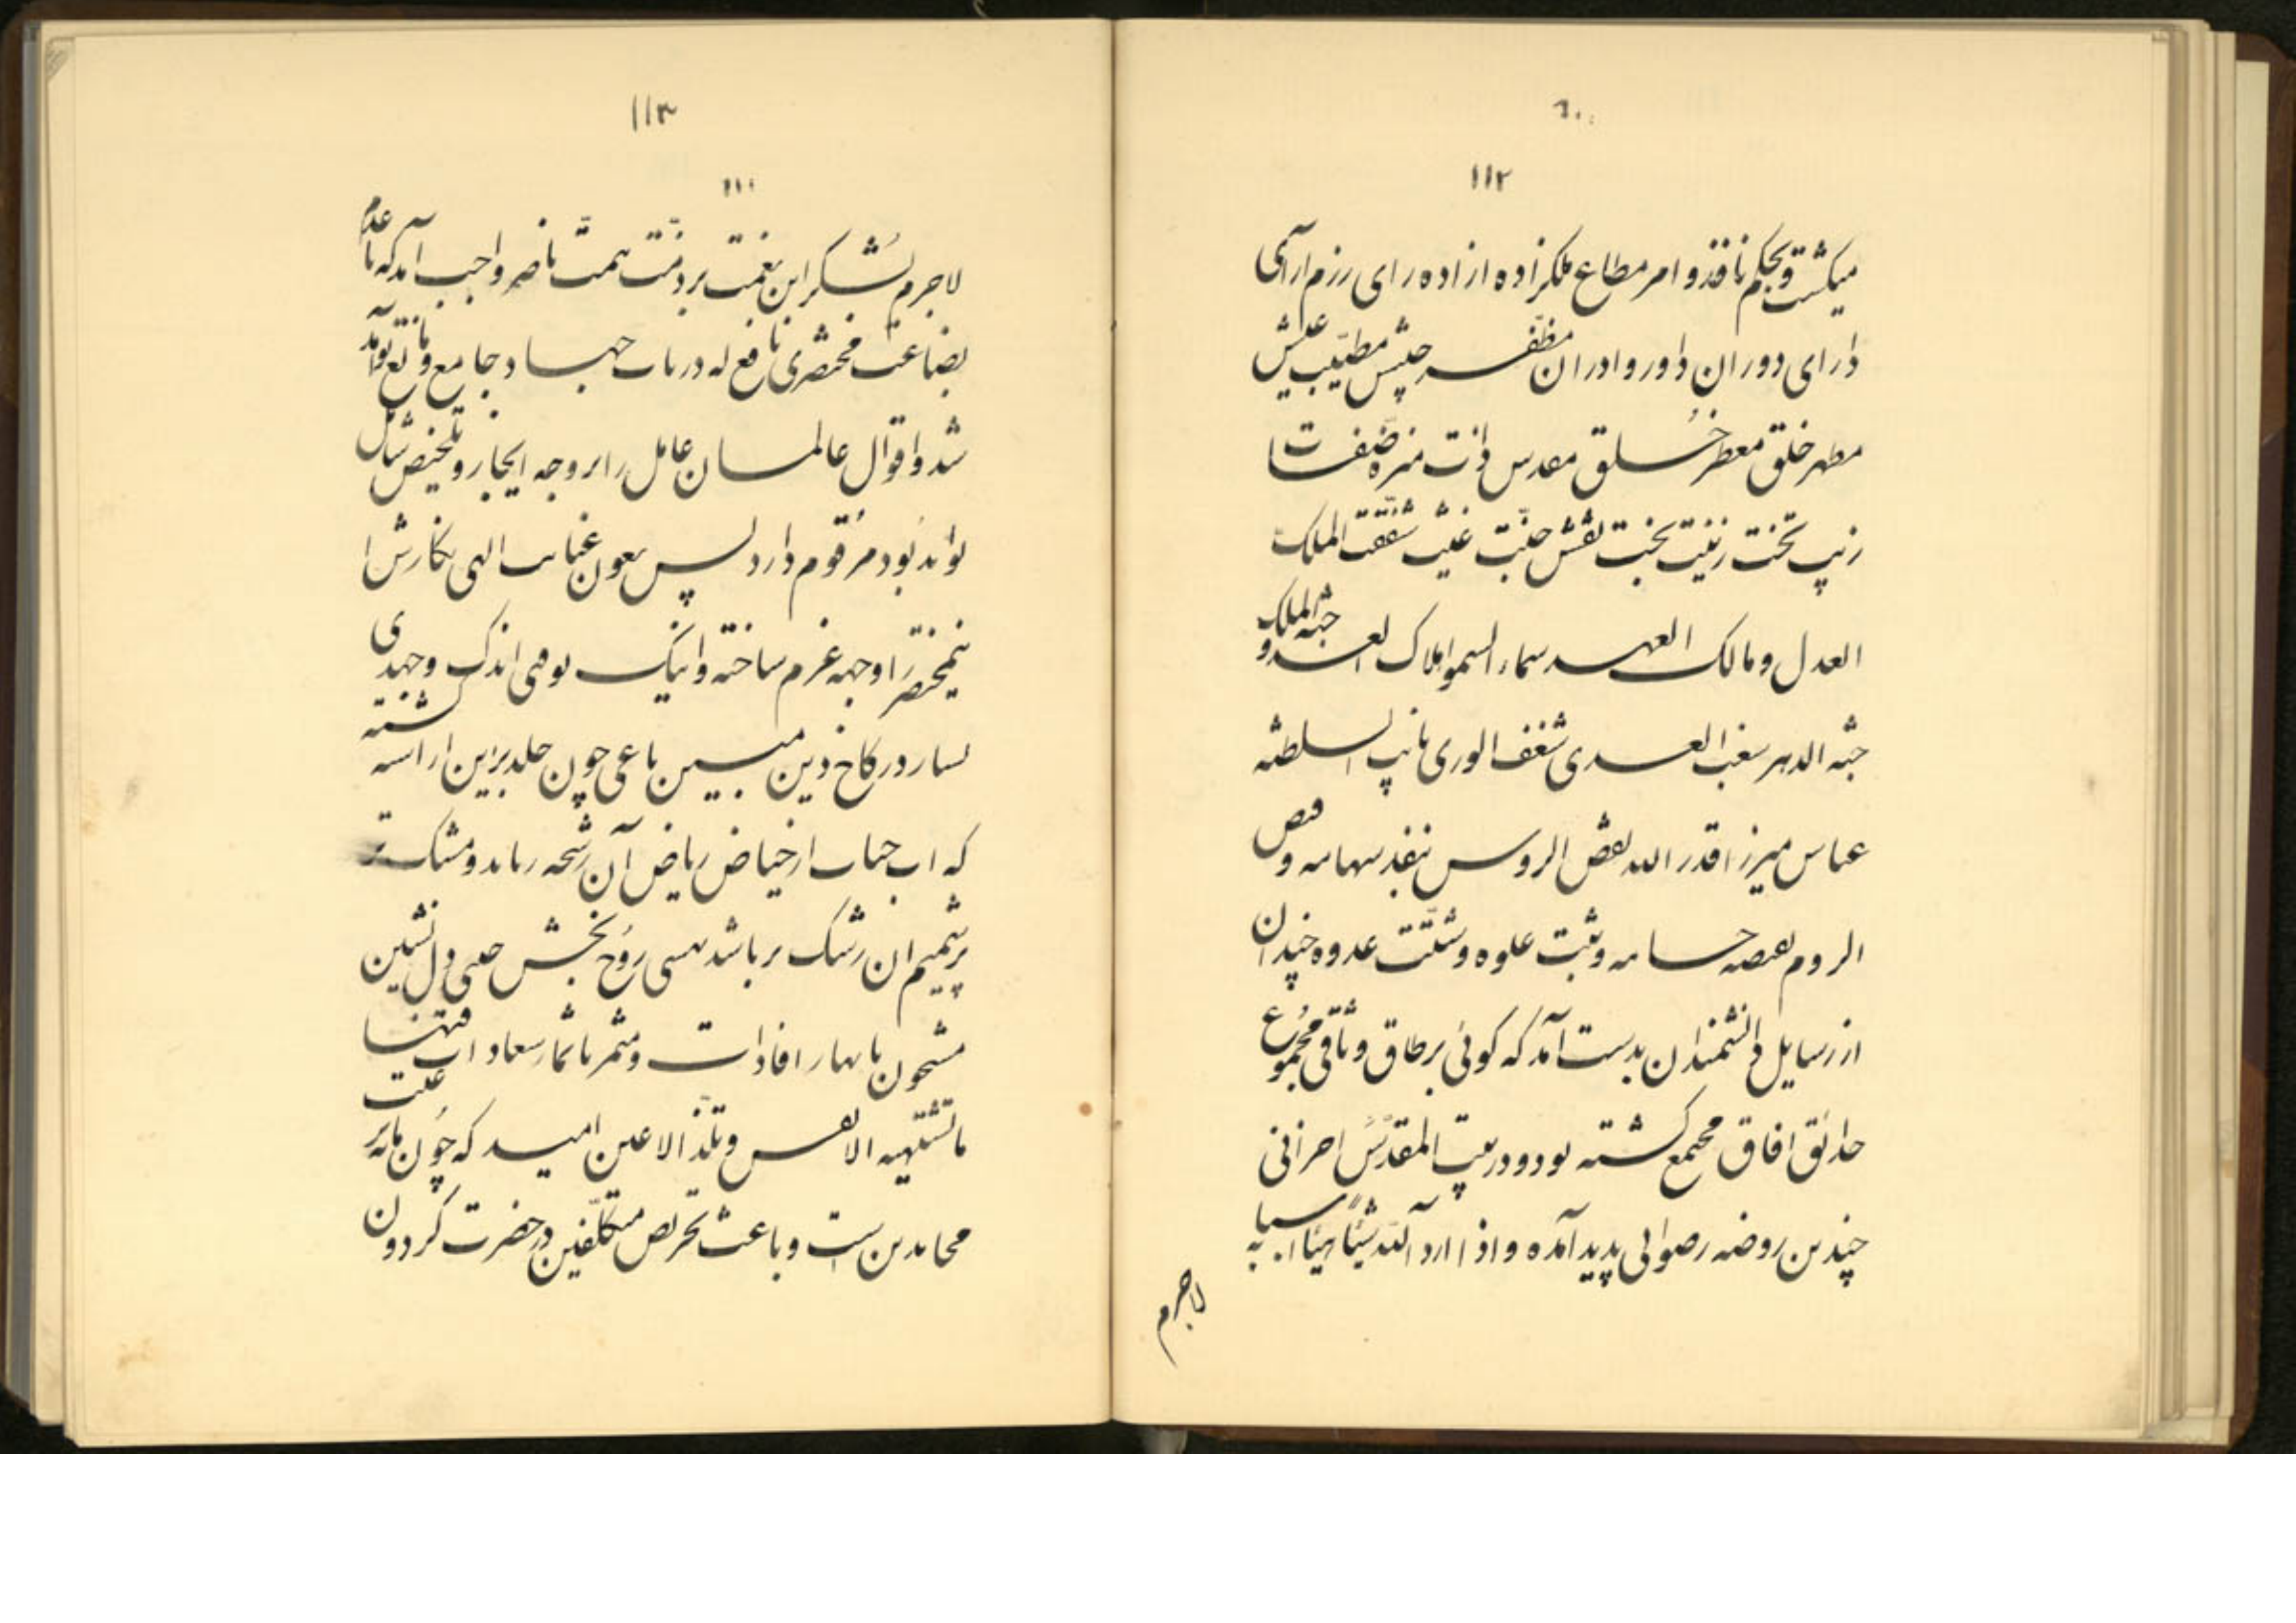 ۱۱۲
میگشت و بحکم نافذ و امر مطاع ملکزاده ازاده رای رزم ارای
دارای دوران داور وادران مظفر جیش مطیب عیش
مطهر خلق معطر خُلق مقدس ذات منزه صفات
زیب تخت زینت بخت نقش جنّت غیث شفقت الملک
العدل و مالک العهد سماء السمو املاک العدو جثه الملک
جثه الدهر سغب العدی شغف الوری نایب السلطنه
عباس میرزا قدر الله بعض الروس بنفذ سهامه و قص
الروم بعصه حسامه و ثبت علوه و شتّت عدوه چندان
از رسایل دانشمندان بدست آمد که گوئی بر طاق وثاقی مجموع
حدائق افاق مجتمع گشته بود و در بیت المقدّس احزانی
چندین روضه رضوانی پدید آمده و اذا اراد الله شیئاً هیّأ اسبابه
لاجرم
۱۱۳
لاجرم بشکر این نعمت بر ذمّت همّت ناصر واجب آمد که با عدم
بضاعت مختصری نافع که در باب جهاد جامع و مانع تواند
شد و اقوال عالمان عامل را بر وجه ایجاز و تلخیص شامل
تواند بود مرقوم دارد پس بعون عنایت الهی نگارش ا
ینمختصر را وجهه عزم ساخته و اینک بوقتی اندک و جهدی
بسیار در کاخ دین مبین باغی چون خلد برین اراسته گشته
که اب حیات از حیاض ریاض آن رشحه رباید و مشک تر
پرشمیم ان رشک بر باشد بسی روُح بخش حسی دل نشین
مشحون بانهار افادات و مثمر باثمار سعادات فیها
ما تشتهیه الانفس و تلذّ الاعین امید که چون مایه رغبت
مجاهدین است و باعث تحریص متکلّفین در حضرت گردون